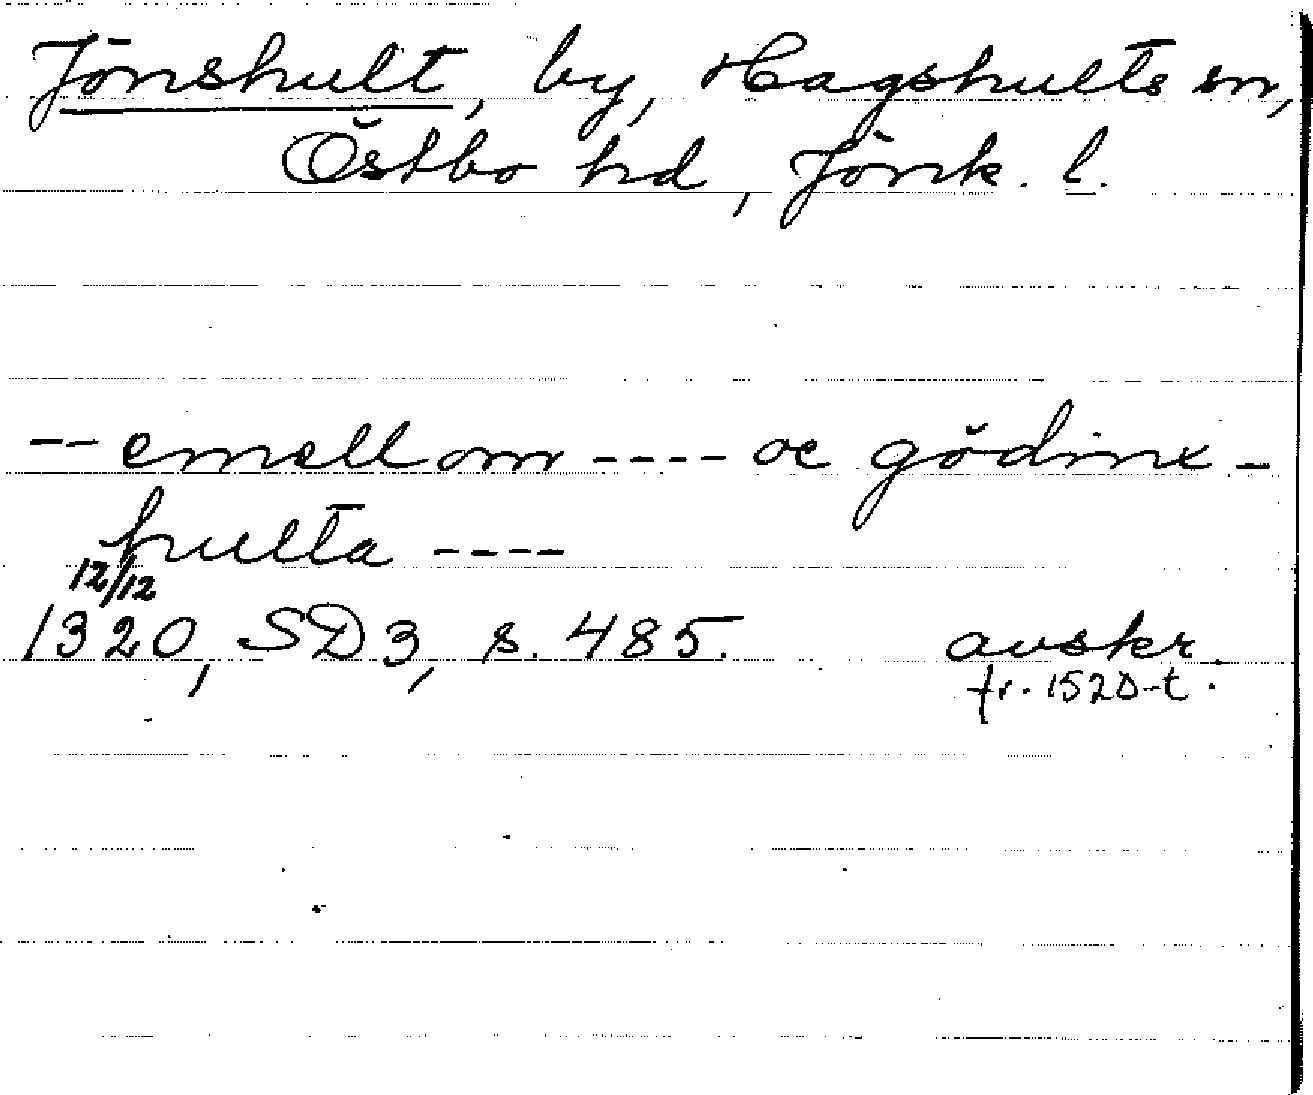 Jönshult, by, Hagshults sn,
Östbo hd, Jönk. l.
-- emellom ---- oc gödinx-
hulta ----
12/12
1320, SD3, s. 485. avskr.
fr. 1520-t.